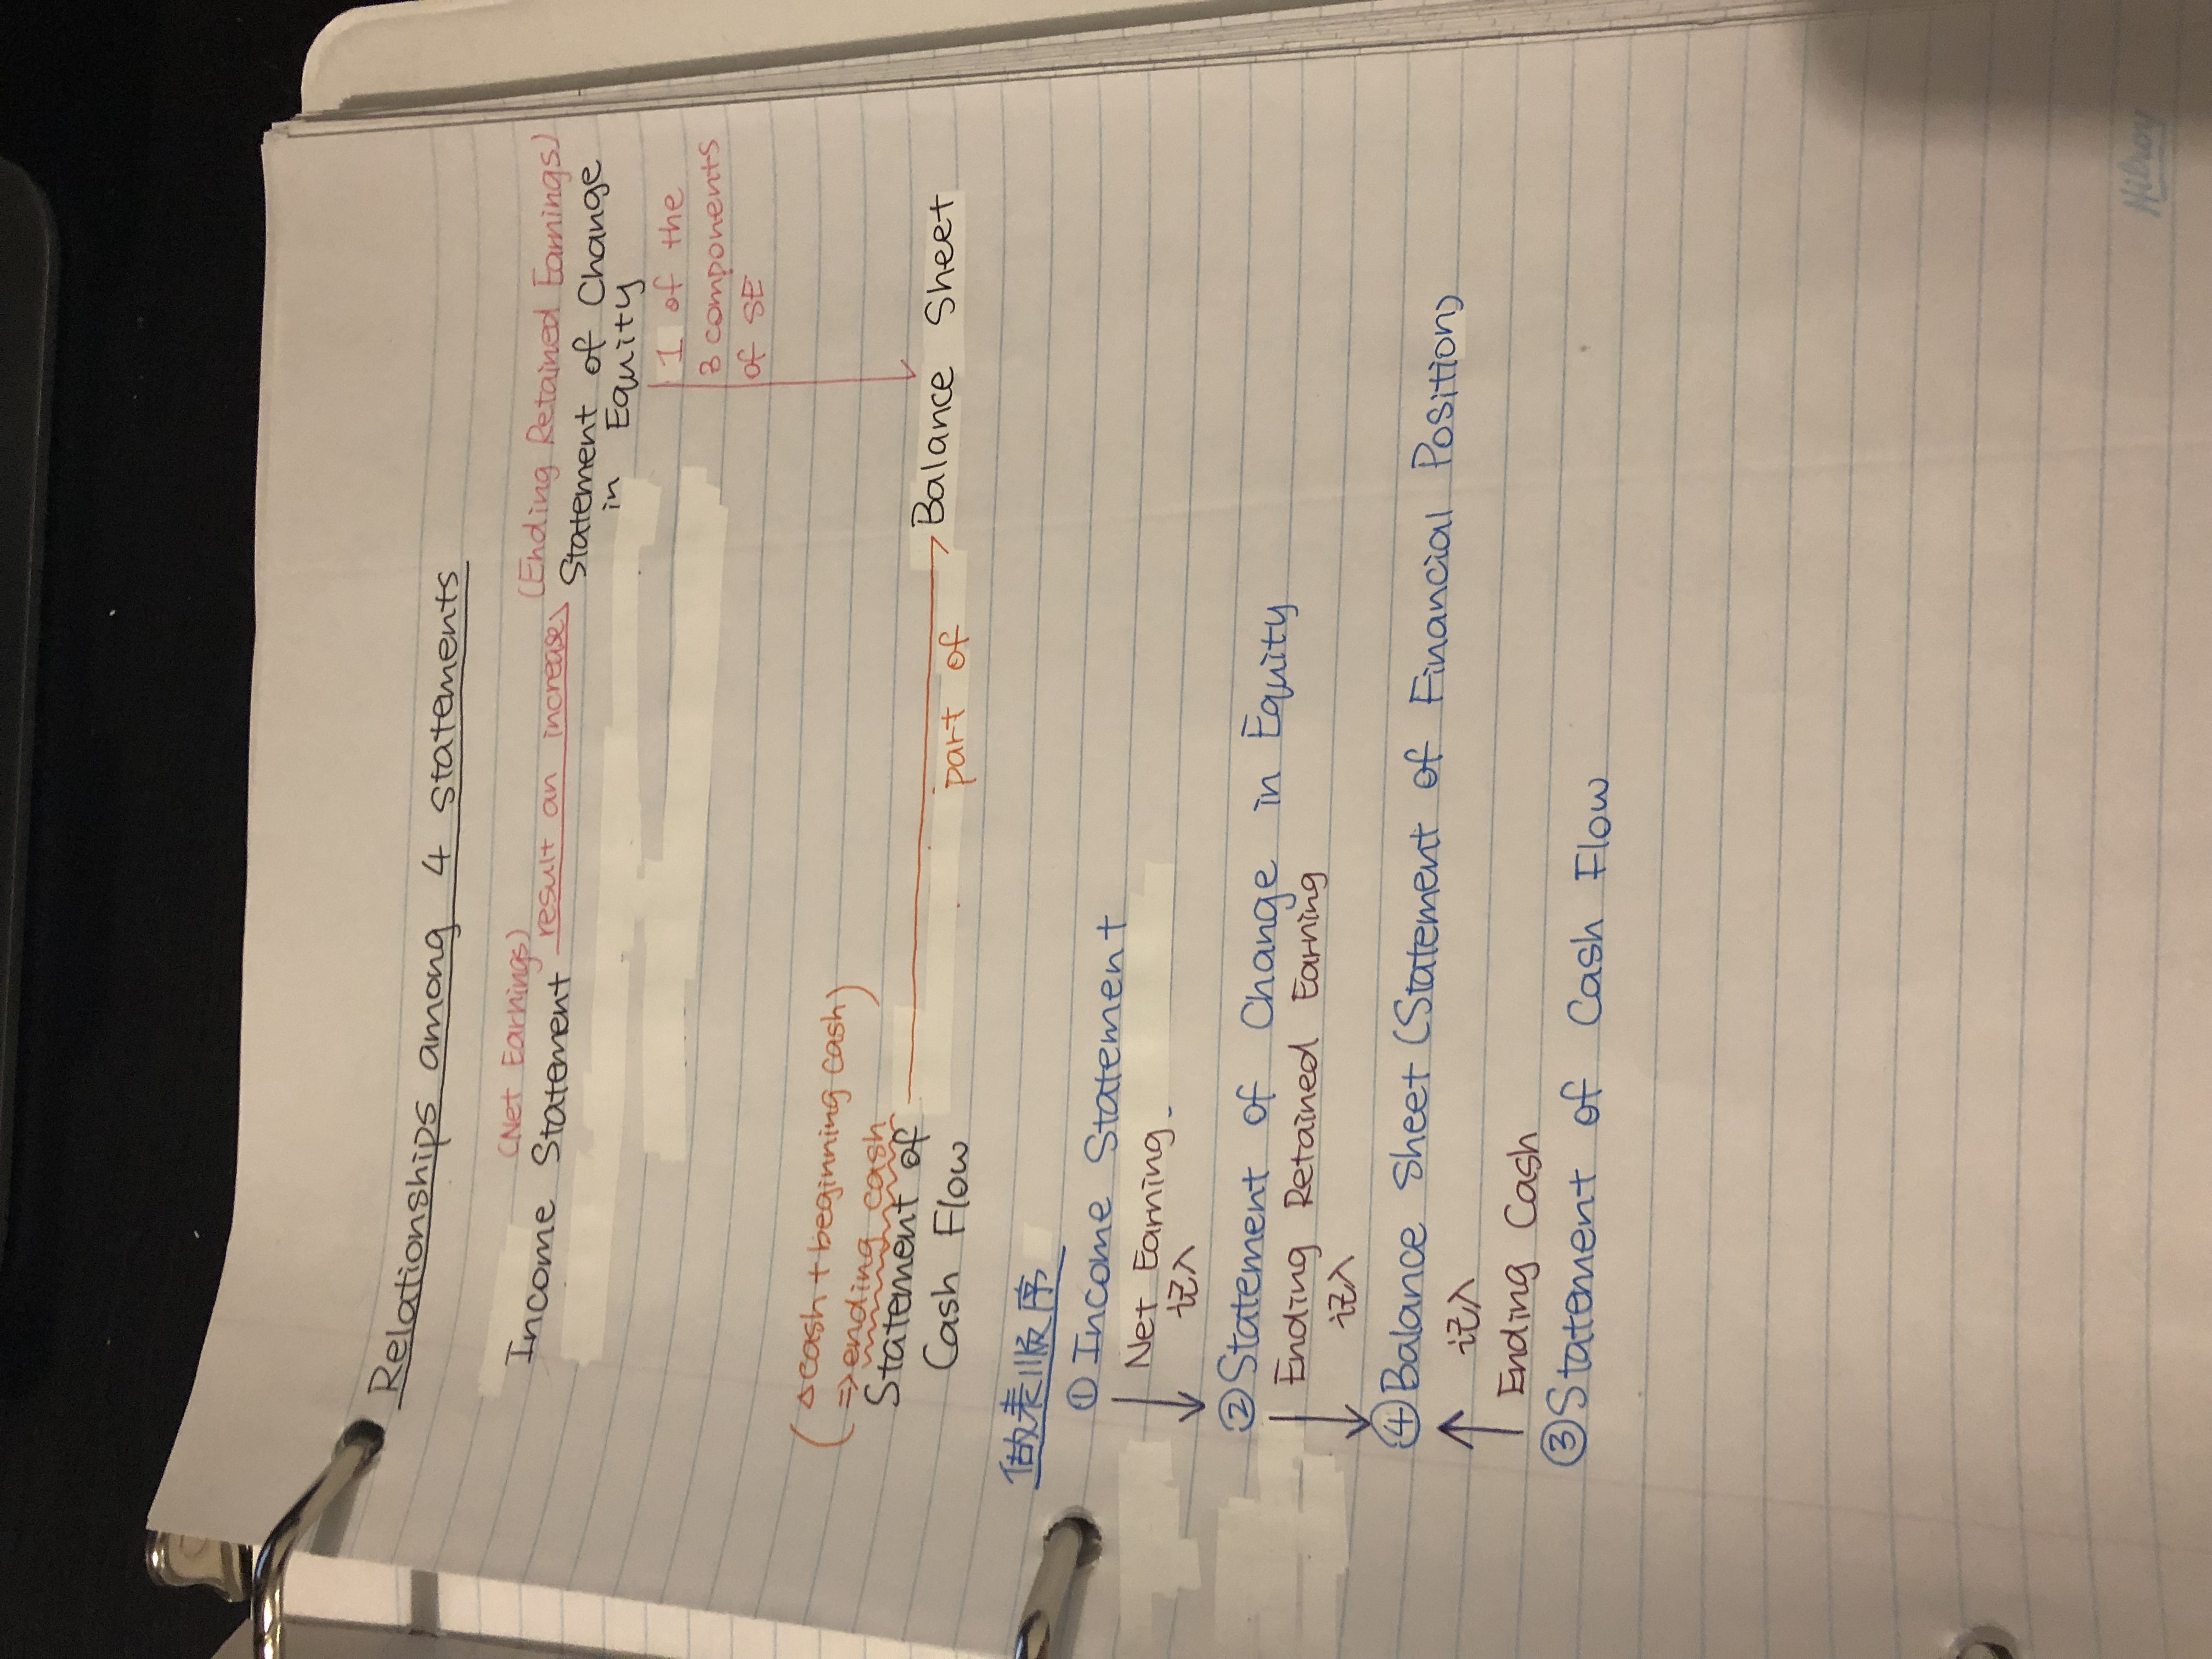 Relationships among 4 statements
(Net Earnings) (Ending Retained Earnings)
Income Statement result an increase Statement of Change
in Equity
1 of the
3 components
of SE
(△cash + beginning cash)
⇒ ending cash
Statement of part of Balance Sheet
Cash Flow
做表顺序
① Income Statement
↓ Net Earning.
记入
② Statement of Change in Equity
↓ Ending Retained Earning
记入
④ Balance Sheet (Statement of Financial Position)
记入
↑ Ending Cash
③ Statement of Cash Flow
Hilroy